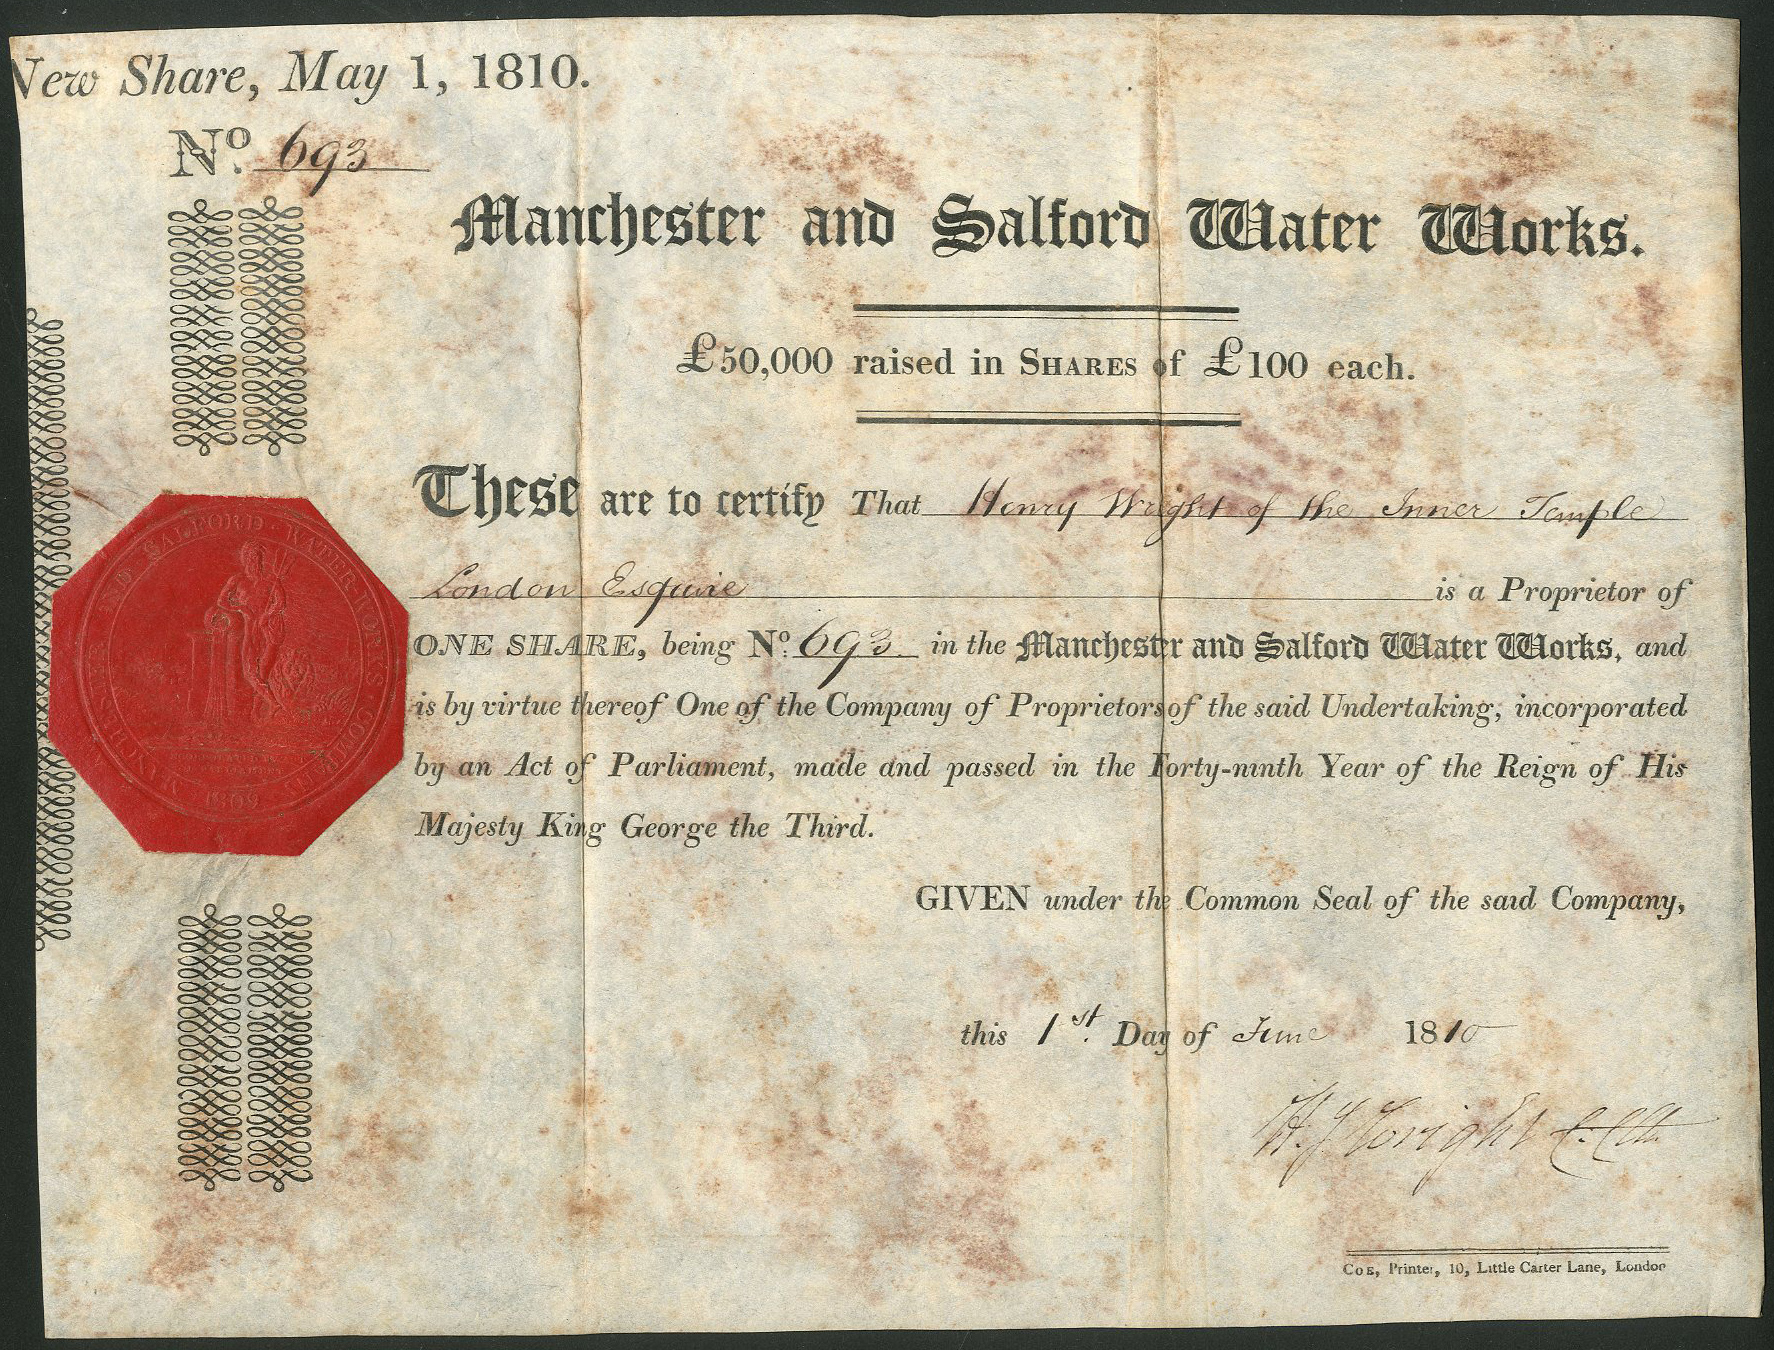 New Share, May 1, 1810.
No. 693
Manchester and Salford Water Works.
£50,000 raised in SHARES of £100 each.
These are to certify That Henry Wright of the Inner Temple
London Esquire is a Proprietor of
ONE SHARE, being No. 693 in the Manchester and Salford Water Works, and
is by virtue thereof One of the Company of Proprietors of the said Undertaking, incorporated
by an Act of Parliament, made and passed in the Forty-ninth Year of the Reign of His
Majesty King George the Third.
AND SALFORD WATER WORKS COMPANY
1809
GIVEN under the Common Seal of the said Company,
this 1st. Day of June 1810
Wright
COE, Printer, 10, Little Carter Lane, London